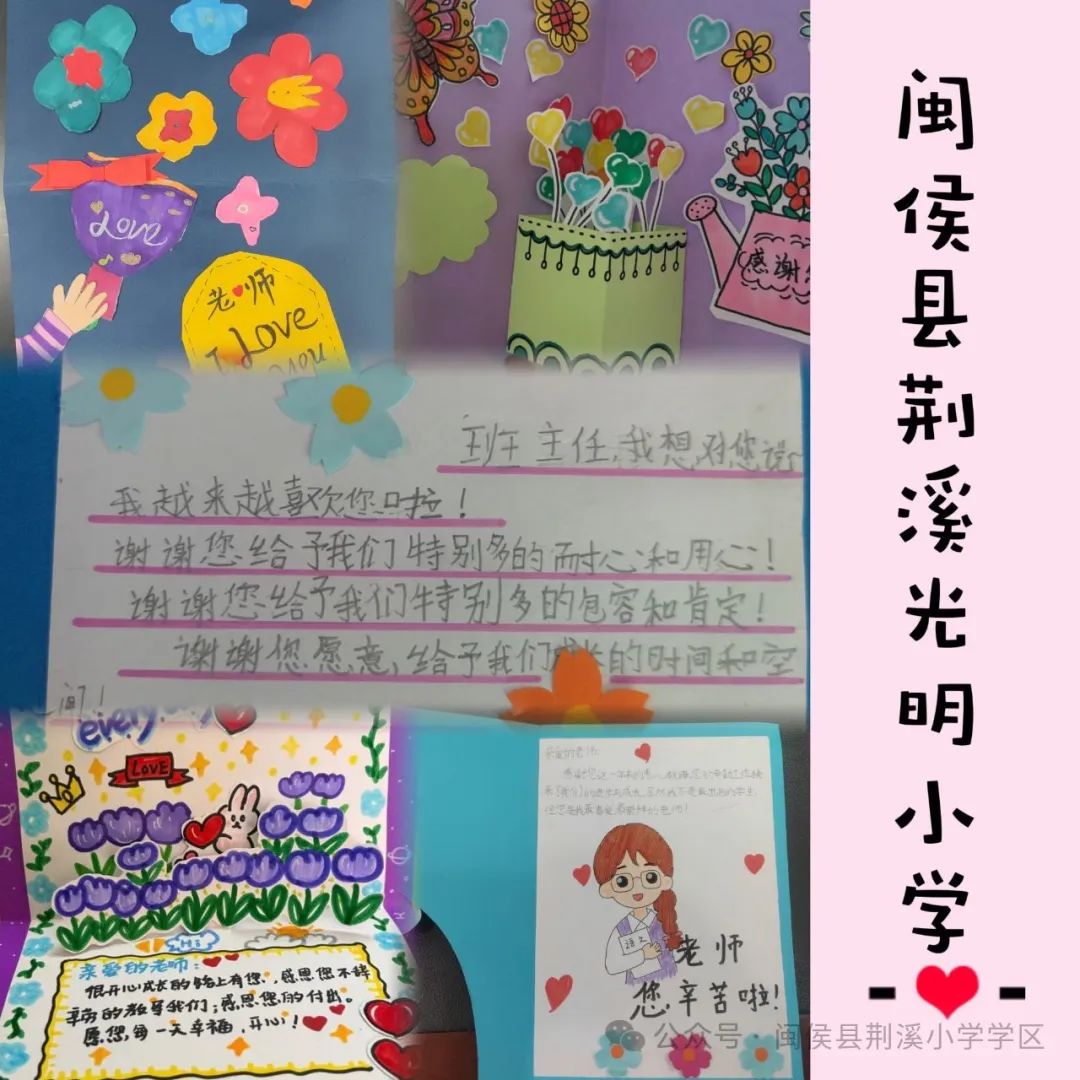 Love
老师
I Love
you
感谢
班主任,我想对您说~
我越来越喜欢您啦!
谢谢您给予我们特别多的耐心和用心!
谢谢您给予我们特别多的包容和肯定!
谢谢您愿意,给予我们成长的时间和空
间!
every
LOVE
Hi
亲爱的老师:
很开心成长的路上有您,感恩您不辞
辛劳的教导我们;感恩您的付出。
愿您,每一天幸福,开心!
亲爱的老师:
语文
老师
您辛苦啦!
闽侯县荆溪光明小学
公众号·闽侯县荆溪小学学区